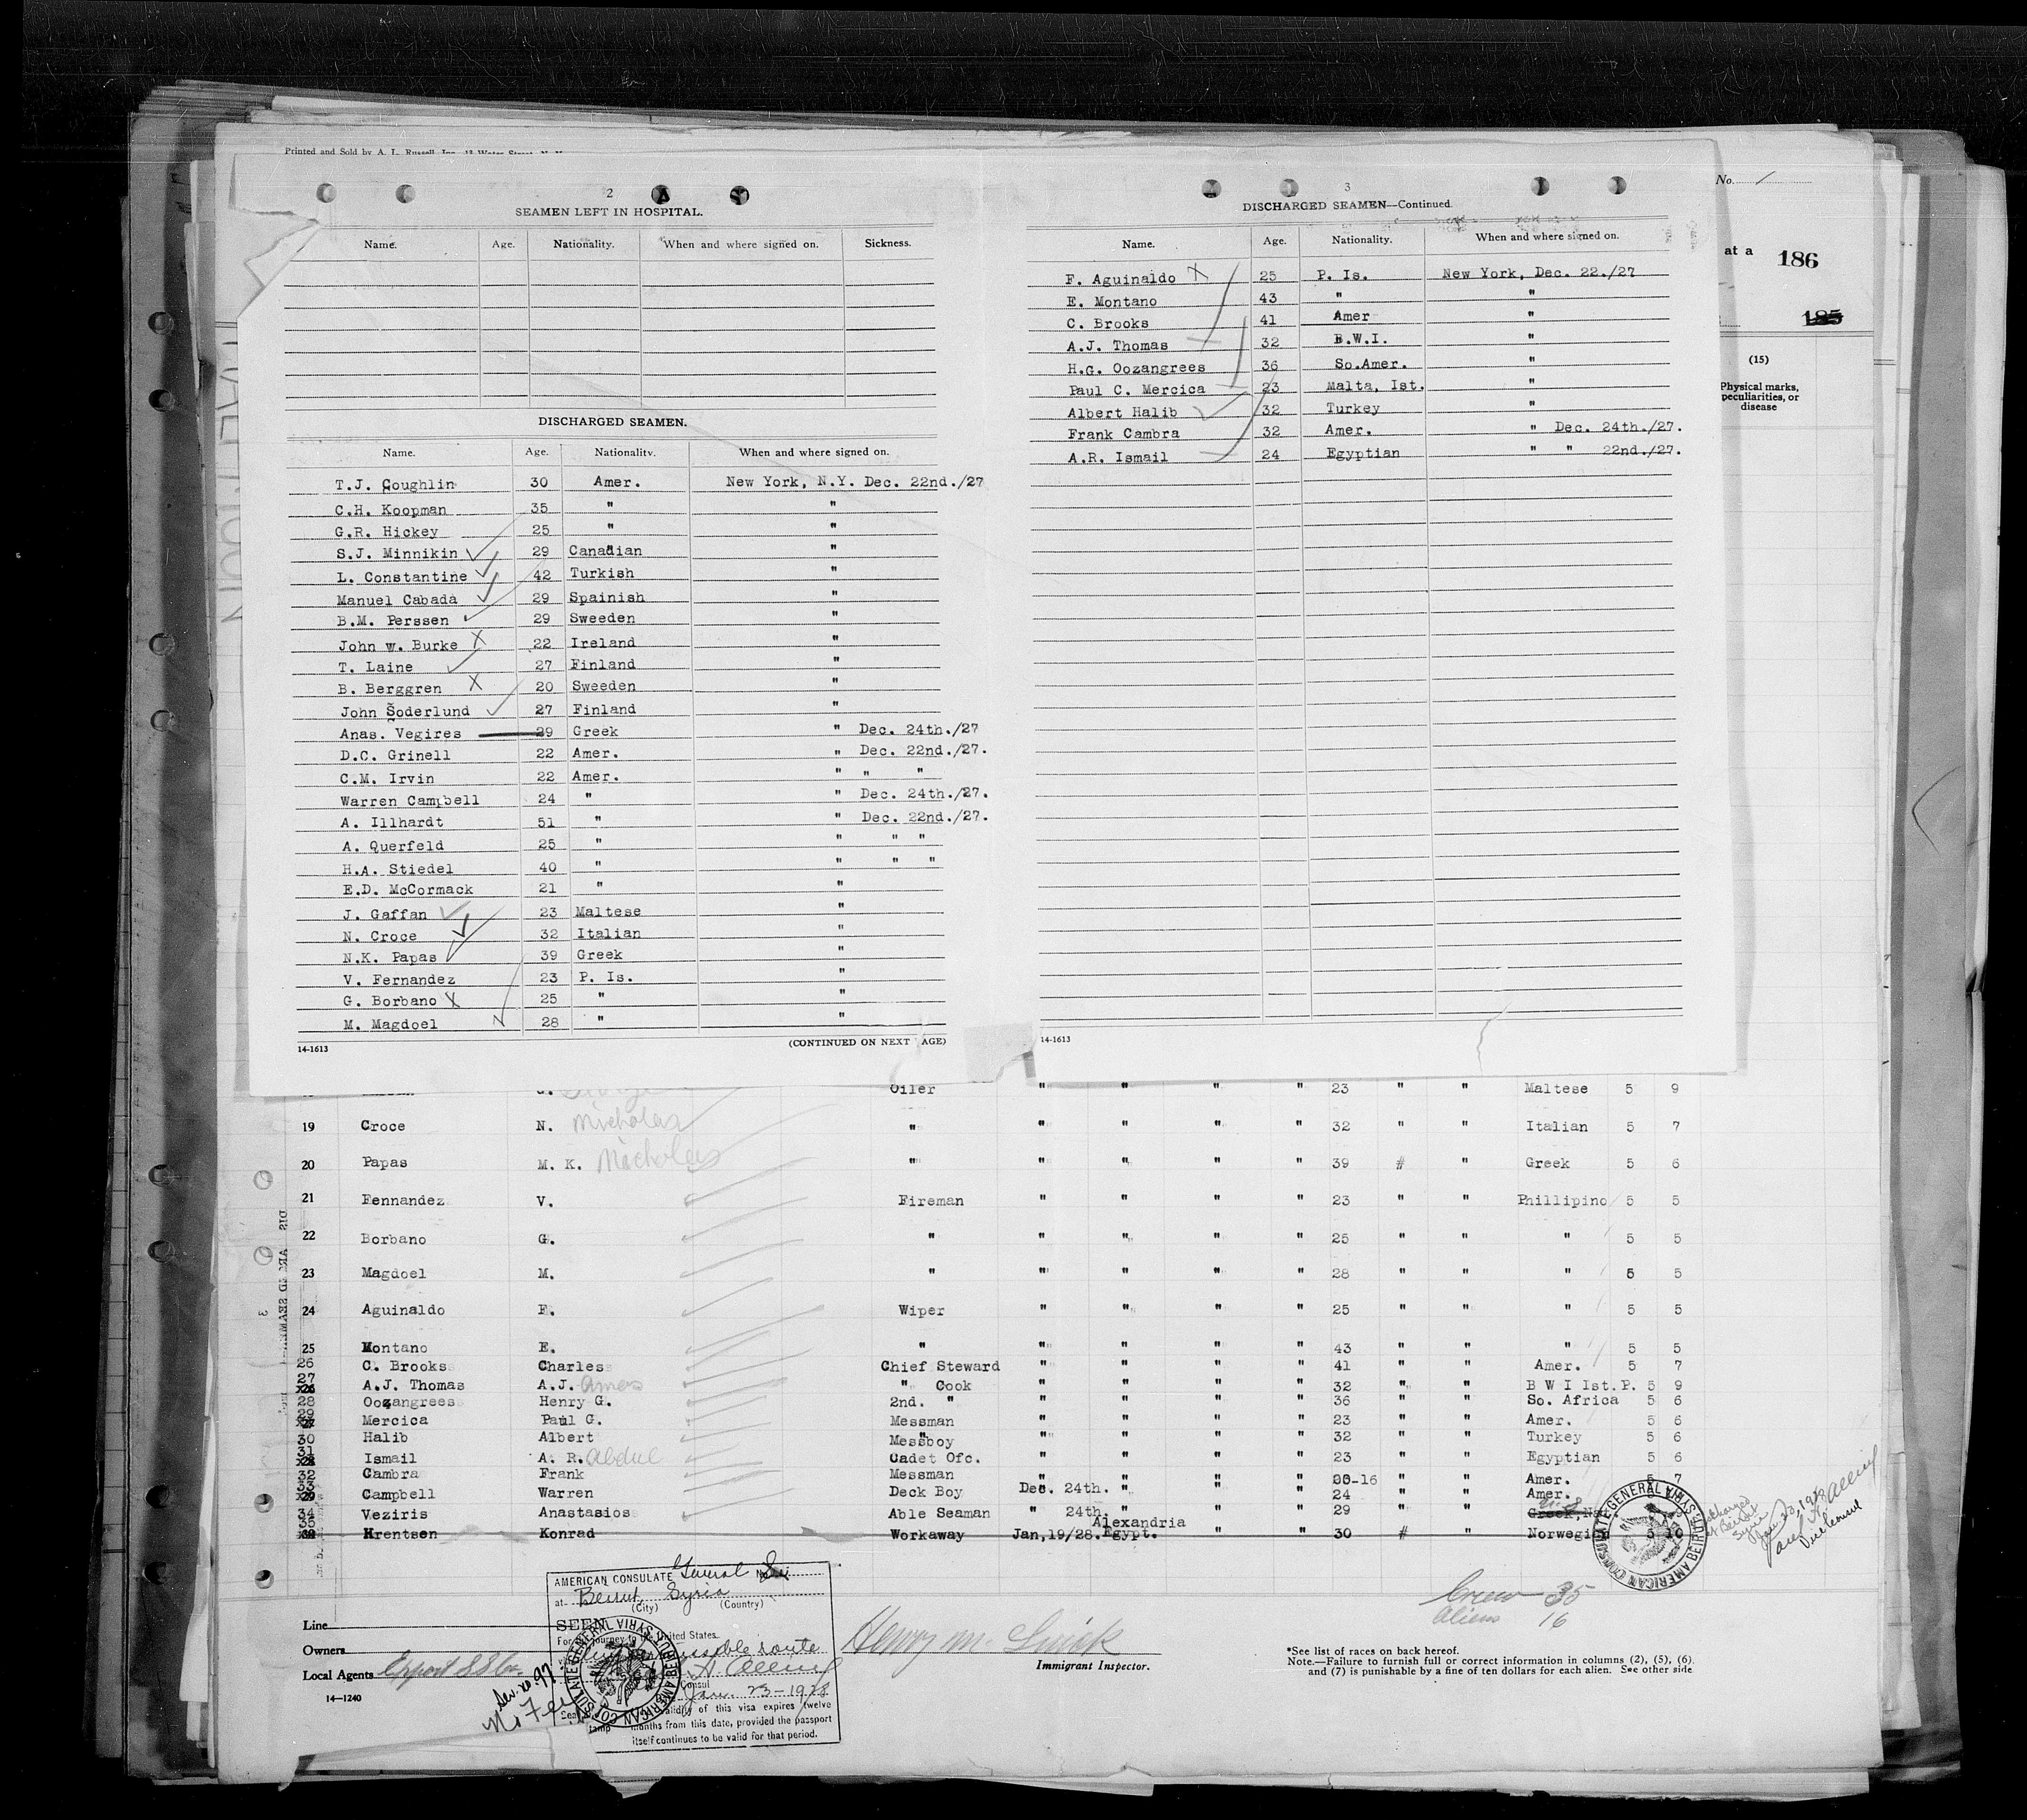 Printed and Sold by A. L. Russell, Inc.
2
SEAMEN LEFT IN HOSPITAL.
Name. Age. Nationality. When and where signed on. Sickness.
DISCHARGED SEAMEN.
Name. Age. Nationality. When and where signed on.
T.J. Coughlin 30 Amer. New York, N.Y. Dec. 22nd./27
C.H. Koopman 35 " "
G.R. Hickey 25 " "
S.J. Minnikin 29 Canadian "
L. Constantine 42 Turkish "
Manuel Cabada 29 Spainish "
B.M. Perssen 29 Sweeden "
John w. Burke X 22 Ireland "
T. Laine 27 Finland "
B. Berggren X 20 Sweeden "
John Soderlund 27 Finland "
Anas. Vegires 29 Greek " Dec. 24th./27
D.C. Grinell 22 Amer. " Dec. 22nd./27.
C.M. Irvin 22 Amer. " " "
Warren Campbell 24 " " Dec. 24th./27.
A. Illhardt 51 " " Dec. 22nd./27.
A. Querfeld 25 " " " "
H.A. Stiedel 40 " " " "
E.D. McCormack 21 " "
J. Gaffan 23 Maltese "
N. Croce 32 Italian "
N.K. Papas 39 Greek "
V. Fernandez 23 P. Is. "
G. Borbano X 25 " "
M. Magdoel 28 " "
14-1613 (CONTINUED ON NEXT AGE)
3
DISCHARGED SEAMEN—Continued.
Name. Age. Nationality. When and where signed on.
F. Aguinaldo X 25 P. Is. New York, Dec. 22./27
E. Montano 43 " "
C. Brooks 41 Amer "
A.J. Thomas 32 B.W.I. "
H.G. Oozangrees 36 So.Amer. "
Paul C. Mercica 23 Malta, Ist. "
Albert Halib 32 Turkey "
Frank Cambra 32 Amer. " Dec. 24th./27.
A.R. Ismail 24 Egyptian " " 22nd./27.
14-1613
No. 1
at a 186
185
(15)
Physical marks,
peculiarities, or
disease
Oiler " " " " 23 " " Maltese 5 9
19 Croce N. Nicholas " " " " " 32 " " Italian 5 7
20 Papas M. K. Nicholas " " " " " 39 # " Greek 5 6
21 Fennandez V. Fireman " " " " 23 " " Phillipino 5 5
22 Borbano G. " " " " " 25 " " " 5 5
23 Magdoel M. " " " " " 28 " " " 5 5
24 Aguinaldo F. Wiper " " " " 25 " " " 5 5
25 Montano E. " " " " " 43 " " " 5 5
26 C. Brooks Charles Chief Steward " " " " 41 " " Amer. 5 7
27 A.J. Thomas A.J. " Cook " " " " 32 " " B W I Ist.P. 5 9
28 Oozangrees Henry G. 2nd. " " " " " 36 " " So. Africa 5 6
29 Mercica Paul G. Messman " " " " 23 " " Amer. 5 6
30 Halib Albert Messboy " " " " 32 " " Turkey 5 6
31 Ismail A. R. Abdul Cadet Ofc. " " " " 23 " " Egyptian 5 6
32 Cambra Frank Messman " " " " -16 " " Amer. 5 7
33 Campbell Warren Deck Boy Dec. 24th. " " " 24 " " Amer.
34 Veziris Anastasios Able Seaman " 24th. " " " 29 " " Greek
35 Krentsen Konrad Workaway Jan,19/28. Alexandria Egypt. " " 30 # " Norwegi 5 10
Jan 23, 1928
Vice Consul
AMERICAN CONSULATE General
at Beirut, Syria
(City) (Country)
SEEN
For the journey to the United States
route
Consul
Jan. 23-1928
validity of this visa expires twelve
months from this date, provided the passport
itself continues to be valid for that period.
AMERICAN CONSULATE GENERAL BEIRUT SYRIA
No Fee
Line
Owners
Local Agents Export SS Co.
14—1240
Henry M.
Immigrant Inspector.
Crew 35
Aliens 16
*See list of races on back hereof.
Note.—Failure to furnish full or correct information in columns (2), (5), (6)
and (7) is punishable by a fine of ten dollars for each alien. See other side
AMERICAN CONSULATE GENERAL BEIRUT SYRIA